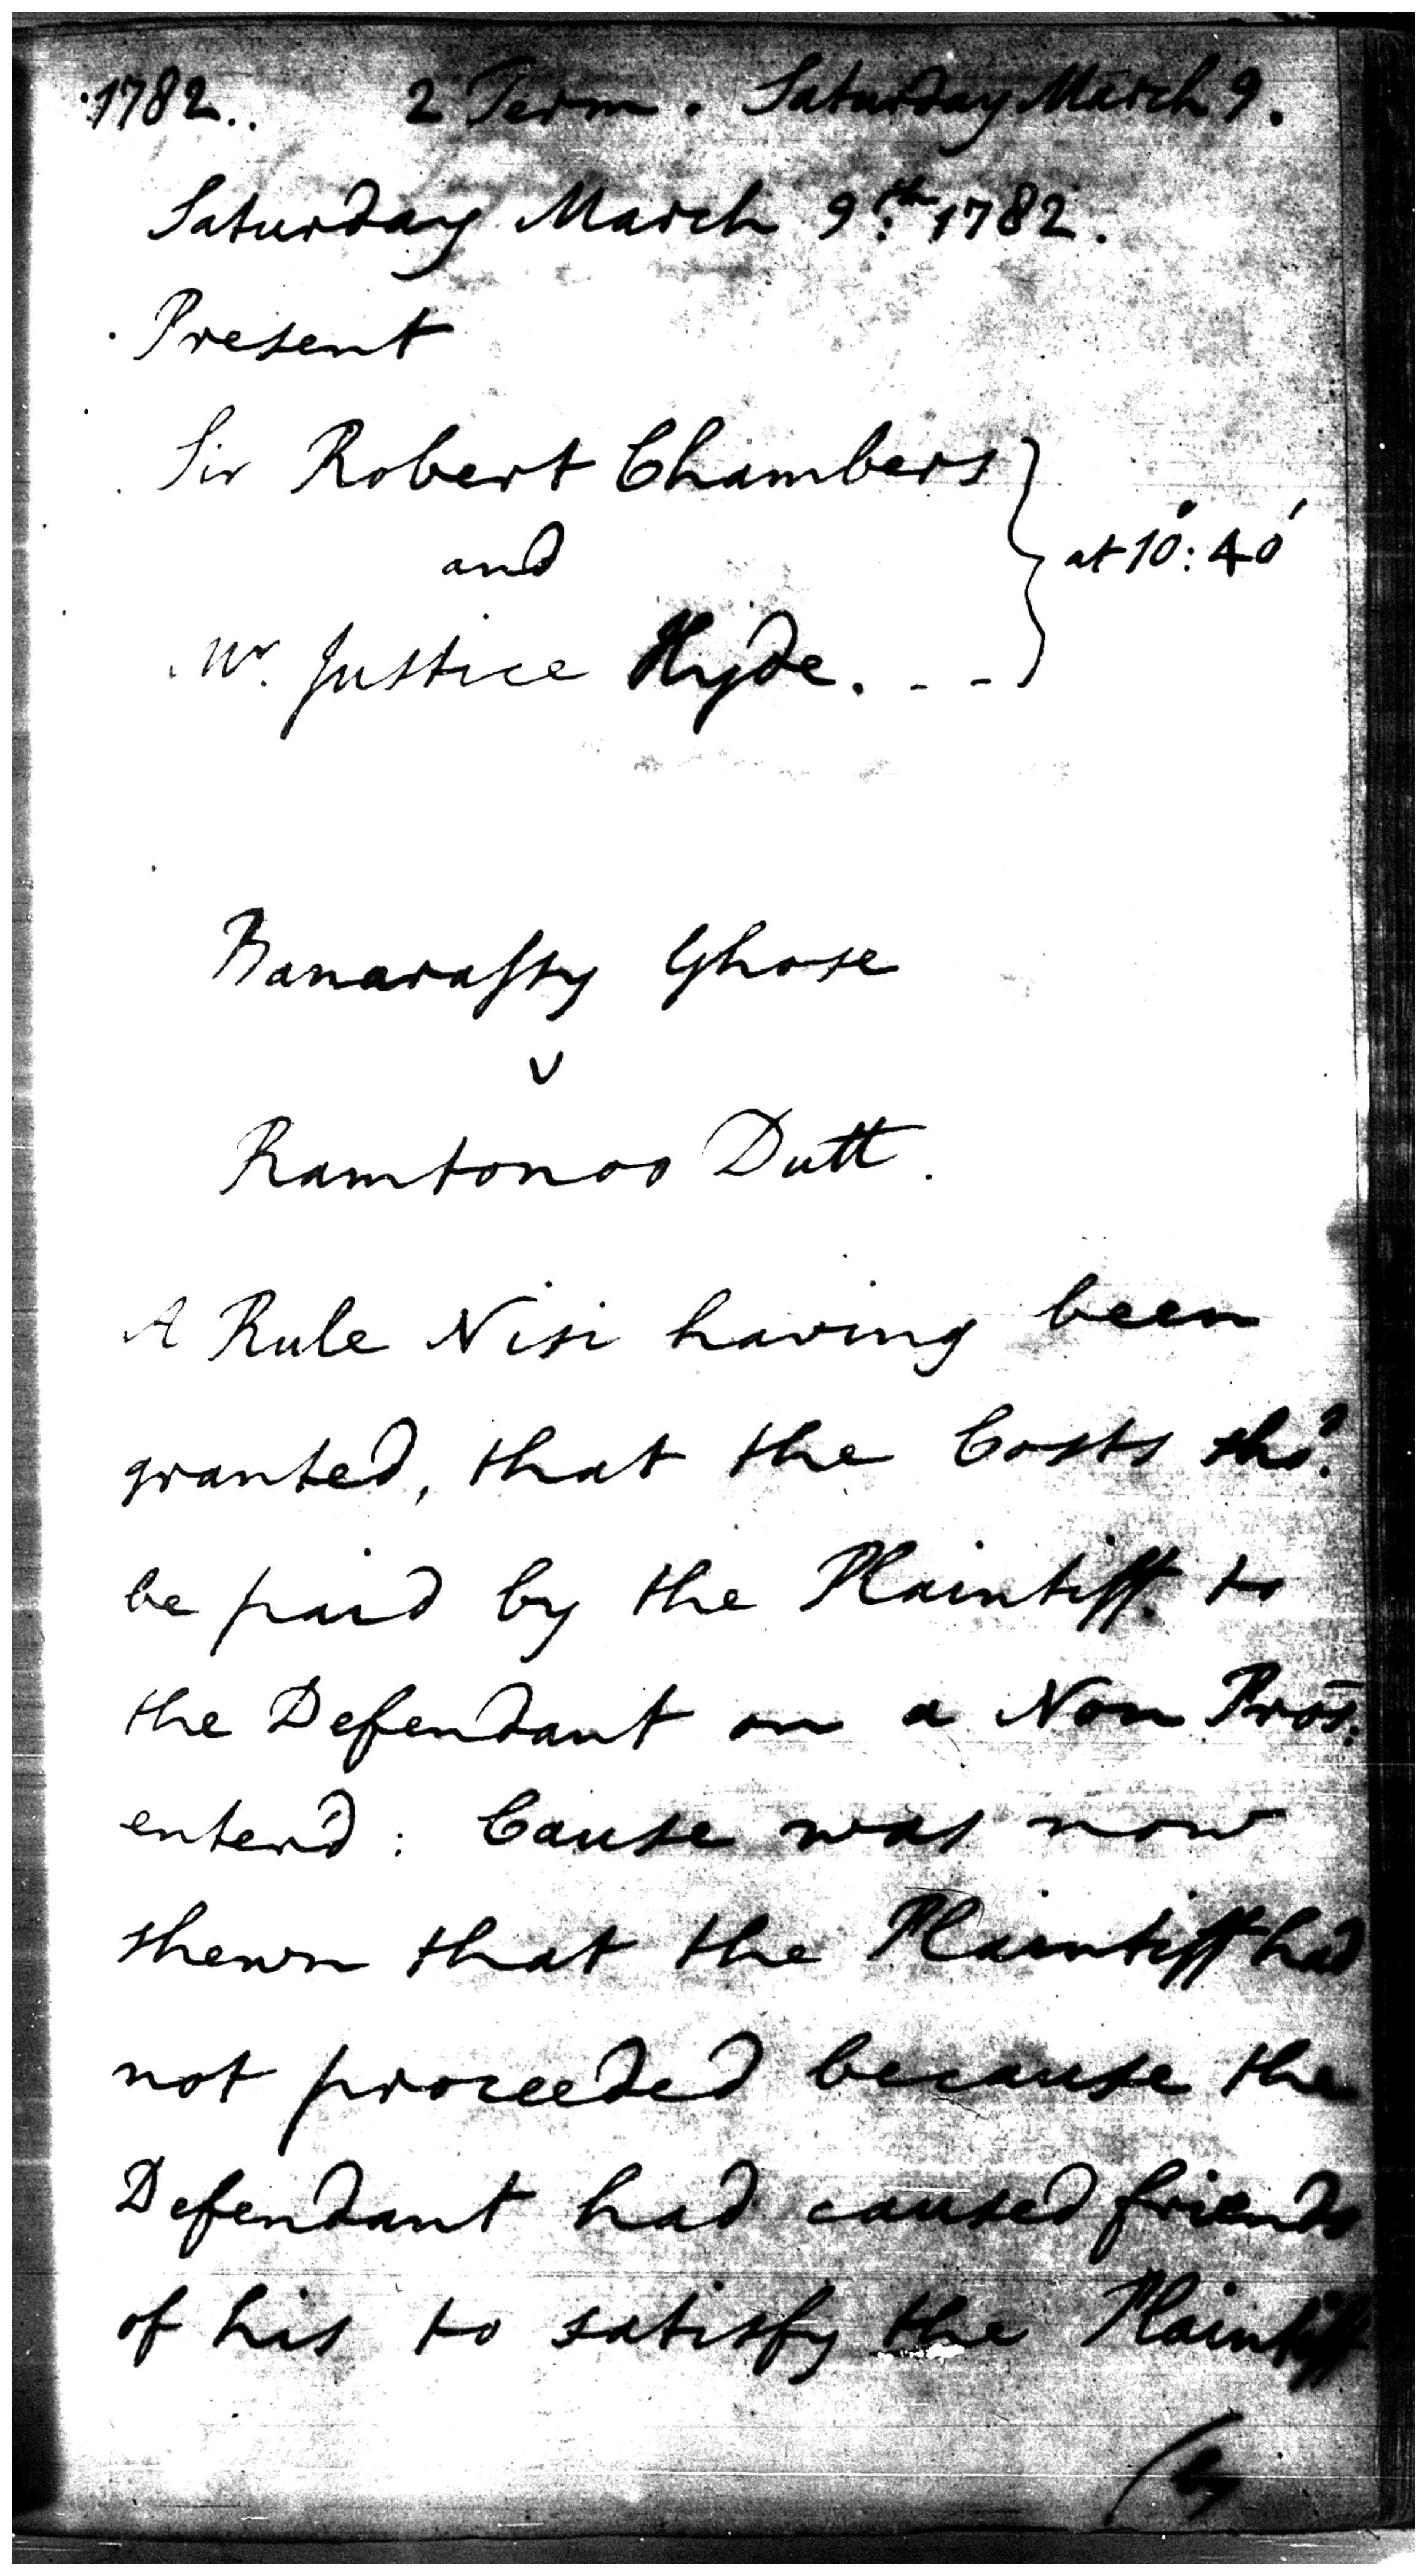 1782.. 2 Term. Saturday March 9.
Saturday March 9.th 1782.
Present
Sir Robert Chambers
and
at 10°: 40'
Mr. Justice Hyde. - -
Banarassy Ghose
v
Ramtonoo Dutt.
A Rule Nisi having been
granted, that the Costs sho.d
be paid by the Plaintiff to
the Defendant on a Non Pros.
enter'd: Cause was now
shewn that the Plaintiff had
not proceeded because the
Defendant had caused friends
of his to satisfy the Plaintiff
(by